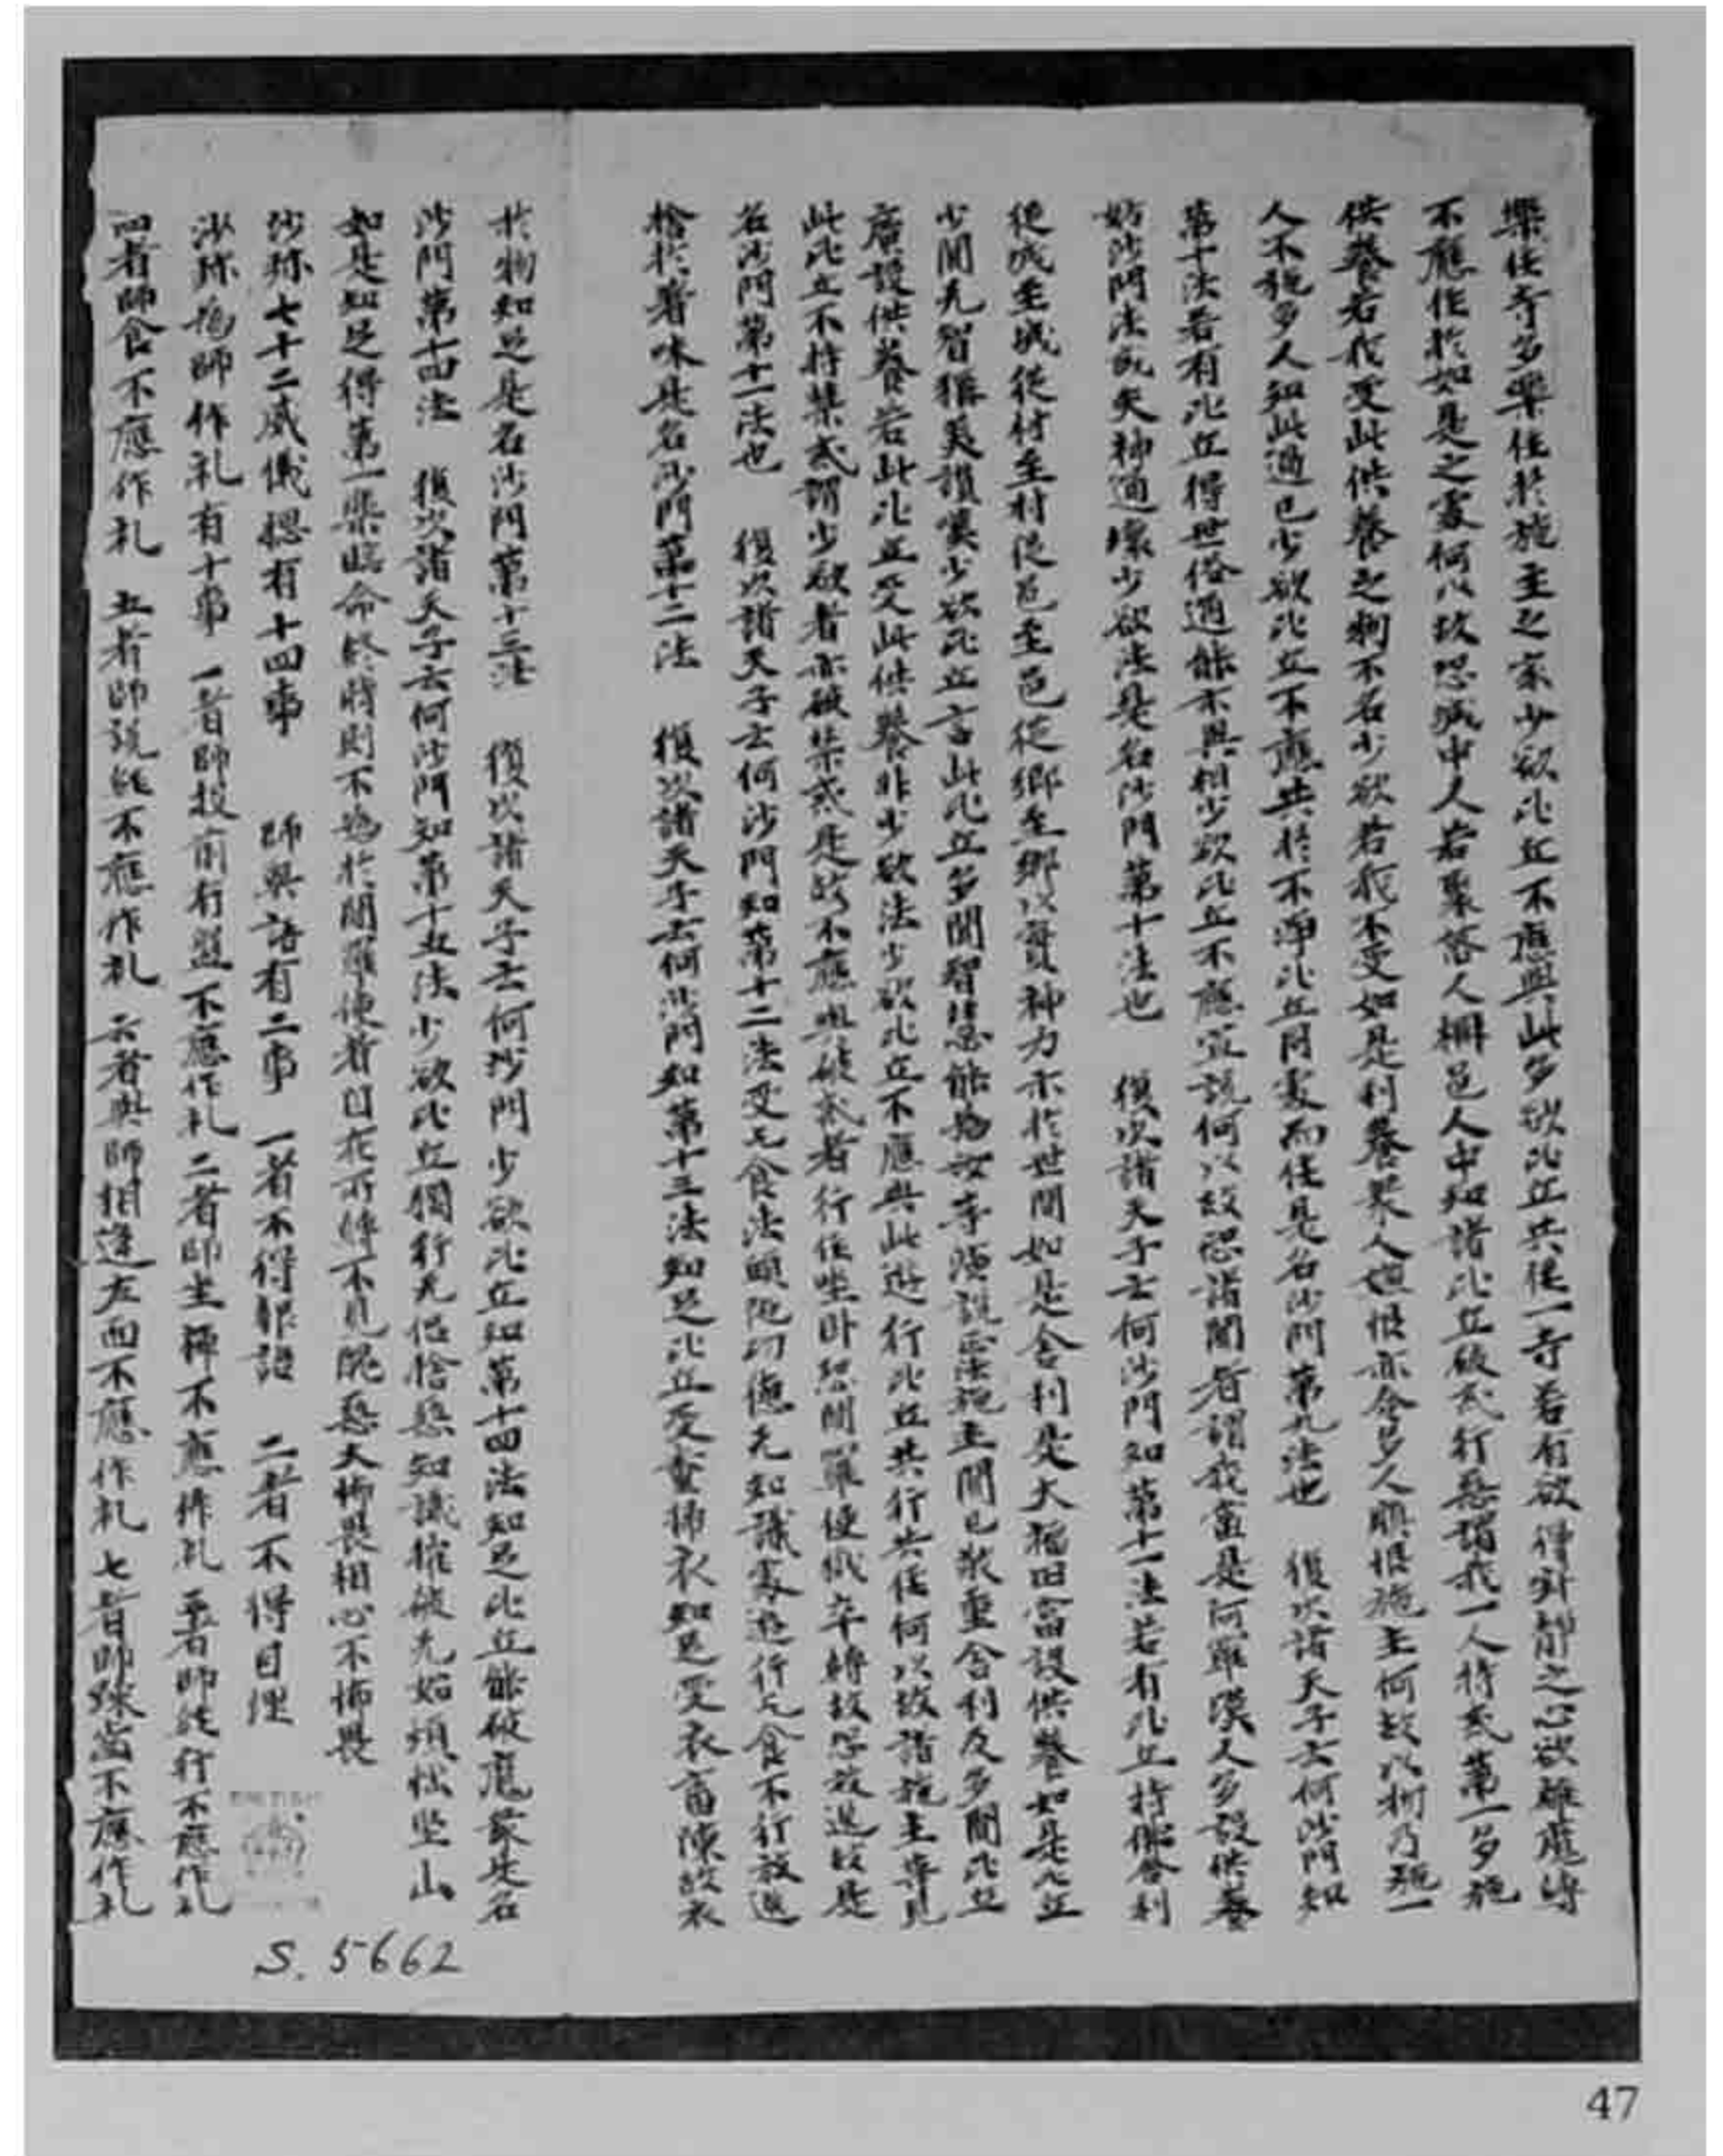 樂住寺多樂住於施主之家少欲比丘不應與此多欲比丘共住一寺若有欲得寂靜之心欲離
不應住於如是之處何以故恐城中人若聚落人柵邑人中知諸比丘破戒行惡謂我一人持戒第一多施
供養若我受此供養之物不名少欲若我不受如是利養眾人嫌恨亦令多人瞋恨施主何故以物乃施一
人不施多人知此過已少欲比丘不應共於不淨比丘同處而住是名沙門第九法也 復次諸天子云何沙門知
第十法若有比丘得世俗通能示異相少欲比丘不應宣說何以故恐諸聞者謂我富是阿羅漢人多設供養
妨沙門法亦失神通壞少欲法是名沙門第十法也 復次諸天子云何沙門知第十一法若有比丘持佛舍利
從城至城從村至村從邑至邑從鄉至鄉以實神力示於世間如是舍利是大福田當設供養如是比丘
少聞无智稱美讚嘆少欲比丘言此比丘多聞智慧能為汝等演說正法施主聞已敬重舍利及多聞比丘
廣設供養若此比丘受此供養非少欲法少欲比丘不應與此遊行比丘共行共住何以故諸施主等見
此比丘不持禁戒謂少欲者亦破禁戒是故不應與破戒者行住坐卧恐閻羅使獄卒縛故恐故退故是
名沙門第十一法也 復次諸天子云何沙門知第十二法受乞食法頭陀功德无知識家遊行乞食不行故退
捨於著味是名沙門第十二法 復次諸天子云何沙門知第十三法知足比丘受糞掃衣知足受衣畜陳故衣
於物知足是名沙門第十三法 復次諸天子云何沙門少欲比丘知第十四法知足比丘能破魔家是名
沙門第十四法 復次諸天子云何沙門知第十五法少欲比丘獨行无侶捨惡知識摧破无始煩惱坐山
如是知足得第一樂臨命終時則不為於閻羅使者日在所縛不見醜惡大怖畏相心不怖畏
沙弥七十二威儀惣有十四事 師與語有二事 一者不得報語 二者不得自理
沙弥為師作礼有十事 一者師投前行過不應作礼 二者師坐禪不應作礼 三者師経行不應作礼
四者師食不應作礼 五者師説経不應作礼 六者與師相逢左面不應作礼 七者師踈齒不應作礼
S. 5662
47